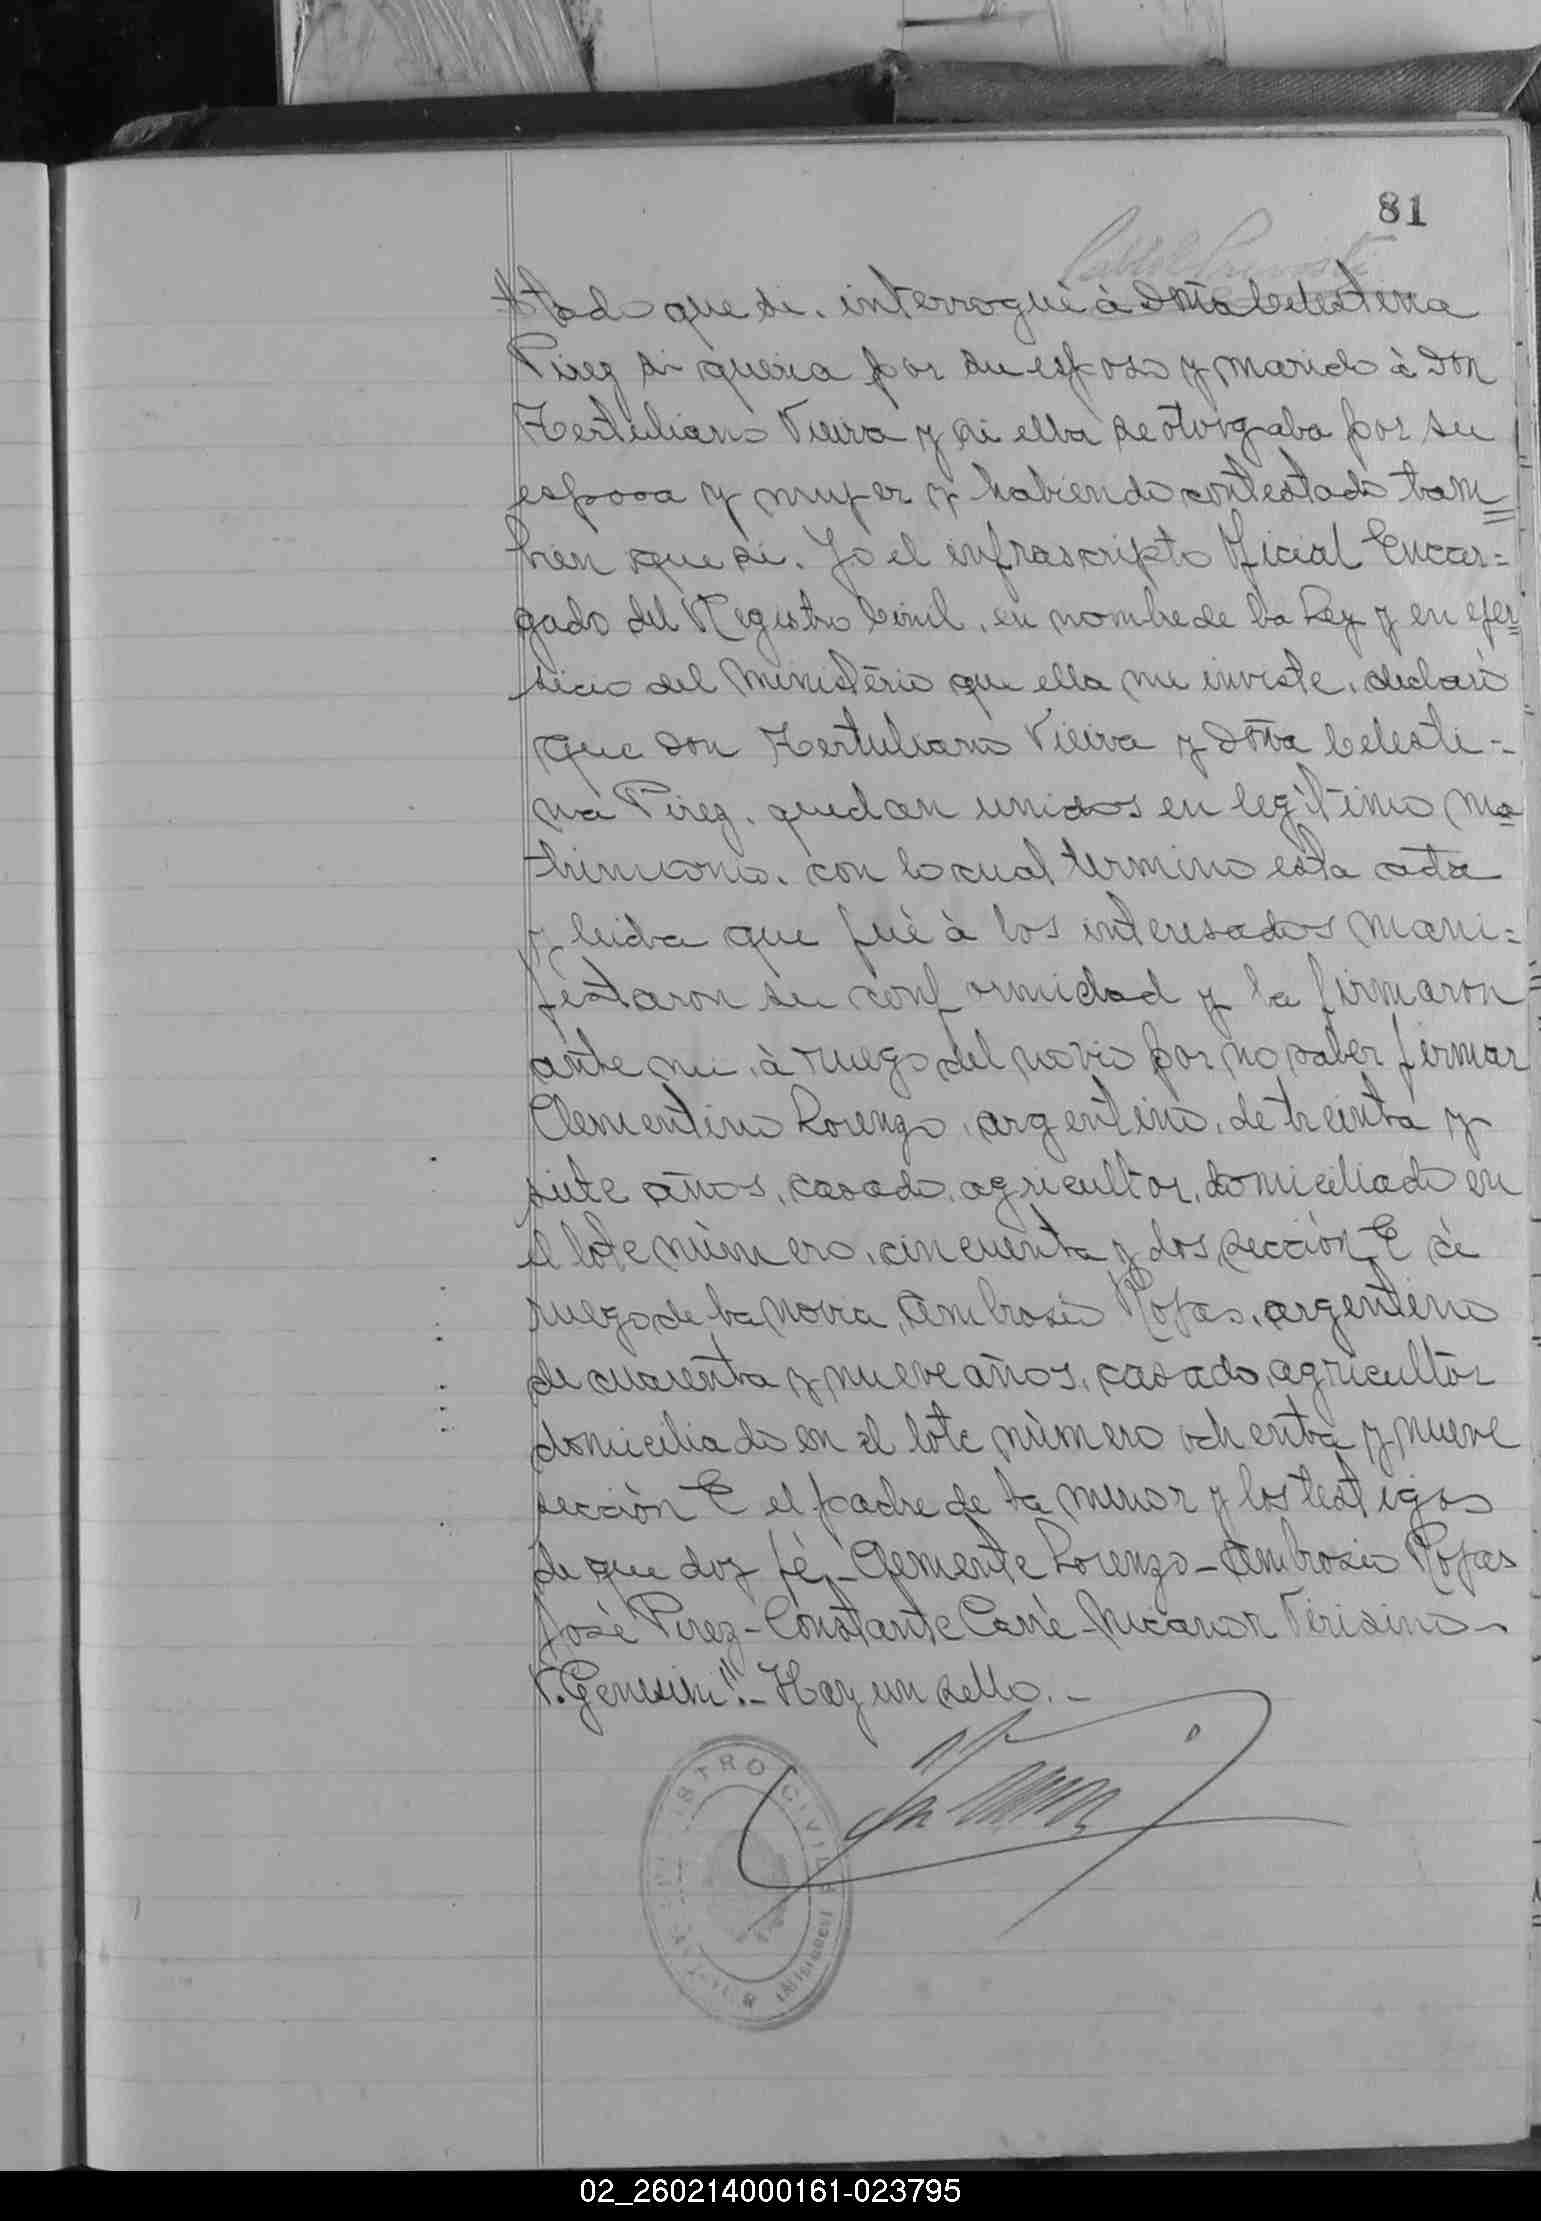 81
tado que si. interrogué à Doña Celestina
Pirez si queria por su esposo y marido à Don
Tertuliano Vieira y si ella se otorgaba por su
esposa y mujer y habiendo contestado tam
bien que si. Yo el infrascripto Oficial Encar=
gado del Registro Civil, en nombre de la Ley y en ejer
sicio del Ministério que ella me inviste, declaro
que Don Tertuliano Vieira y Doña Celesti=
na Pirez, quedan unidos en legítimo ma
trimonio, con lo cual termino esta acta
y leida que fué à los interesados mani=
festaron su conformidad y la firmaron
ante mi, à ruego del novio por no saber firmar
Clementino Lorenzo, argentino, de treinta y
siete años, casado, agricultor, domiciliado en
el lote número, cincuenta y dos, sección E à
ruego de la novia, Ambrosio Rojas, argentino
de cuarenta y nueve años, casado, agricultor
domiciliado en el lote número ochenta y nueve
sección E el padre de la menor y los testigos
de que doy fé,- Clemente Lorenzo - Ambrosio Rojas
José Pirez - Constante Carré - Nicanor Virisimo -
V. Genesini".- Hay un sello. -
REGISTRO CIVIL
02_260214000161-023795